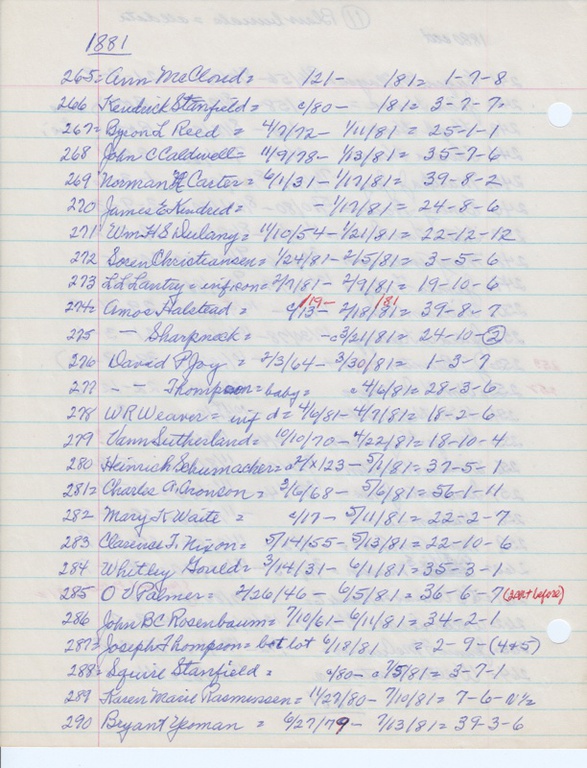 1881
265= Ann McCloud= /21- /81= 1-7-8
266 Kendrick Stanfield= c/80- /81= 3-7-7
267= Byron L Reed = 4/7/72- 1/11/81= 25-1-1
268 John C Caldwell= 11/9/78- 1/13/81= 35-7-6
269 Norman H Carter= 6/1/31- 1/17/81= 39-8-2
270 James E Kindred= - 1/17/81= 24-8-6
271 Wm H S Dulany= 11/10/54- 1/21/81= 22-12-12
272 Soren Christiansen= 1/24/81- 2/5/81= 3-5-6
273 L L Lantry= inf son= 2/7/81- 2/9/81= 19-10-6
/19- /81
274= Amos Halstead= c/13- 2/18/81= 39-8-7
275 - Sharpnack= -c3/21/81= 24-10-2
276 David P Joy = 2/3/64- 3/30/81= 1-3-7
277 - - Thompson= baby= c4/6/81= 28-3-6
278 W R Weaver= inf d= 4/6/81- 4/7/81= 18-2-6
279 Vann Sutherland= 10/10/70- 4/22/81= 18-10-4
280 Heinrich Schumacher= /23- 5/1/81= 37-5-1
281= Charles A Aronson= 2/6/68- 5/6/81= 56-1-11
282 Mary K Waite = c/17- 5/11/81= 22-2-7
283 Clarence T. Nixon= 5/14/55- 5/13/81= 22-10-6
284 Whitley Gould= 3/14/31- 6/1/81= 35-3-1
285 O V Palmer= 2/26/46- 6/5/81= 36-6-7 (before)
286 John BC Rosenbaum= 7/10/61- 6/11/81= 34-2-1
287= Joseph Thompson= bot lot 6/18/81 = 2-9-(4+5)
288= Squire Stanfield= c/80- c7/5/81= 3-7-1
289 Karen Marie Rasmussen= 11/27/80- 7/10/81= 7-6-N½
290 Bryant Yeoman = 6/27/79- 7/13/81= 39-3-6